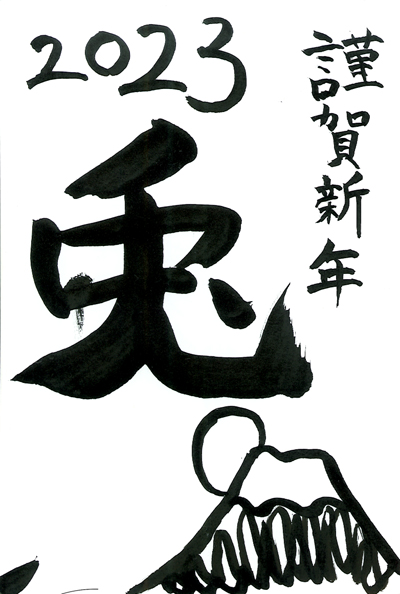 2023
謹賀新年
兎